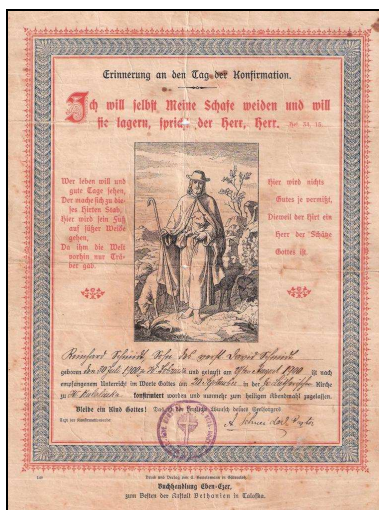 Erinnerung an den Tag der Konfirmation.
Ich will selbst Meine Schafe weiden und will
sie lagern, spricht der Herr, Herr. Hes. 34, 15.
Wer leben will und
gute Tage sehen,
Der mache sich zu die-
ses Hirten Stab,
Hier wird sein Fuß
auf süßer Weide
gehen,
Da ihm die Welt
vorhin nur Trä-
ber gab.
Hier wird nichts
Gutes je vermißt,
Dieweil der Hirt ein
Herr der Schätze
Gottes ist.
Reinhard Schmidt, Sohn des David Schmidt
geboren den 30 Juli 1900, zu und getauft am August 1900 ist nach
empfangenem Unterricht im Worte Gottes am in der Kirche
zu konfirmiert worden und nunmehr zum heiligen Abendmahl zugelassen.
Bleibe ein Kind Gottes! Das ist der herzliche Wunsch deines Seelsorgers
Druck und Verlag von
Buchhandlung Eben-Ezer,
zum Besten der Anstalt Bethanien in Talofka.